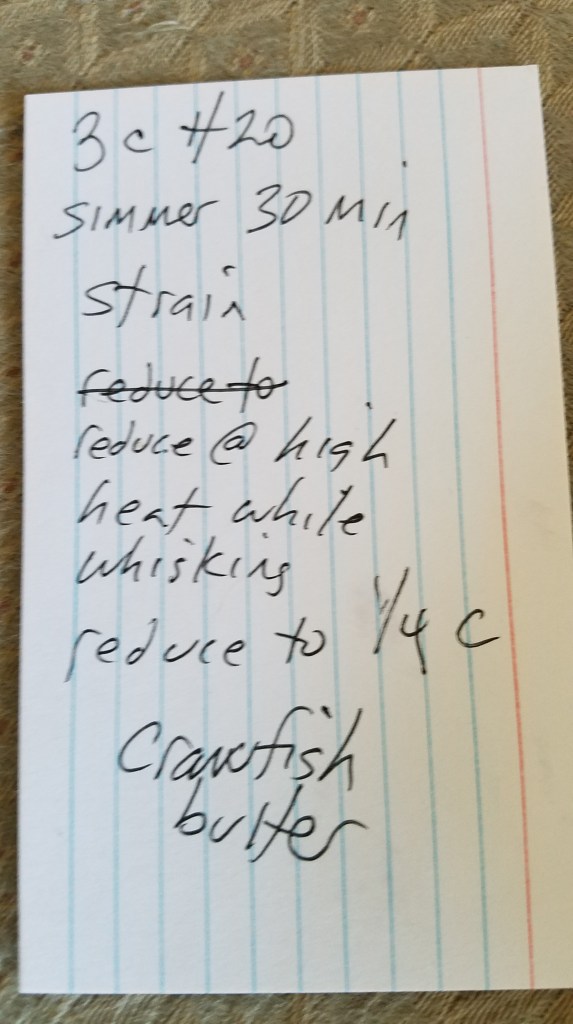 3 c H2O
simmer 30 min
strain
reduce to
reduce @ high
heat while
whisking
reduce to 1/4 c
Crawfish
butter